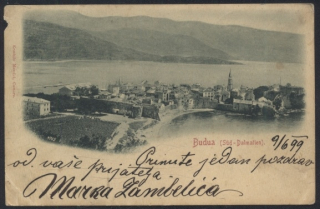 Budua (Süd-Dalmatien).
9/6 99
Primite jedan pozdrav
od vaše prijatelja
Marka Zambelića